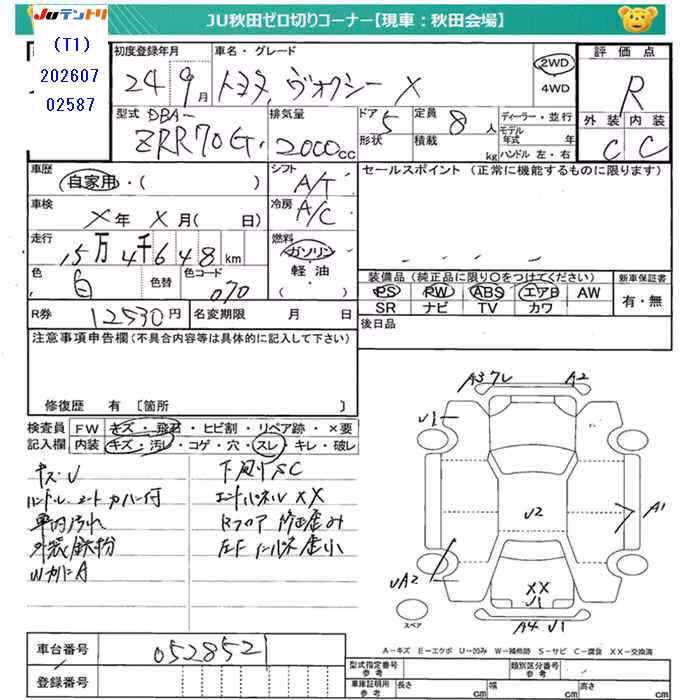 JUテントリ
JU秋田ゼロ切りコーナー【現車：秋田会場】
（T1）
202607
02587
初度登録年月
24年9月
車名・グレード
トヨタ ヴォクシー X
2WD
4WD
評価点
R
外装 内装
C C
型式 DBA-
ZRR70G
排気量
2000cc
ドア 5
形状
定員 8人
積載 kg
ディーラー・並行
モデル年式 年
ハンドル 左・右
車歴
自家用・（ ）
シフト
A/T
セールスポイント（正常に機能するものに限ります）
車検
X年X月（ 日）
冷房
A/C
走行
15万4千648km
燃料
ガソリン
軽油
・（ ）
色
白
色替
色コード
070
装備品（純正品に限り○をつけてください）
PS PW ABS エアB AW
SR ナビ TV カワ
新車保証書
有・無
R券
12530円
名変期限 月 日
後日品
注意事項申告欄（不具合内容等は具体的に記入して下さい）
修復歴 有 〔箇所 〕
検査員 記入欄
FW キズ・飛石・ヒビ割・リペア跡・×要
内装 キズ・汚レ・コゲ・穴・スレ・キレ・破レ
キズ・U
ハンドル、シートカバー付
車内汚れ
外装鉄粉
下廻りSC
エンドパネルXX
Rフロア 修正歪み
A3 フレ
A2
U1
U2
A1
UA2
XX
U1
A4 U1
スペア
A－キズ E－エクボ U－凹み W－補修跡 S－サビ C－腐食 XX－交換済
車台番号
0528521
登録番号
型式指定番号
参考
類別区分番号
参考
車庫証明用
参考
長さ cm
幅 cm
高さ cm